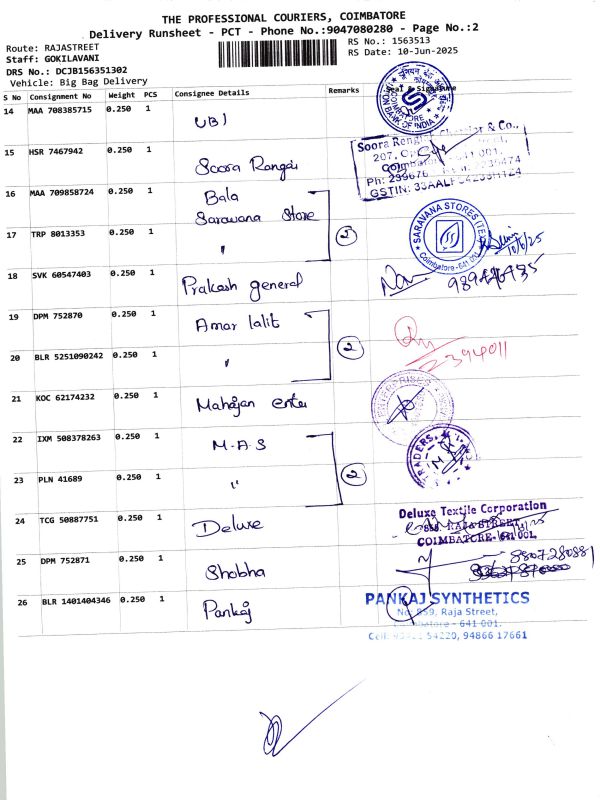 THE PROFESSIONAL COURIERS, COIMBATORE
Delivery Runsheet - PCT - Phone No.:9047080280 - Page No.:2
Route: RAJASTREET
RS No.: 1563513
Staff: GOKILAVANI
RS Date: 10-Jun-2025
DRS No.: DCJB156351302
Vehicle: Big Bag Delivery
S No Consignment No Weight PCS Consignee Details Remarks Seal & Signature
14 MAA 708385715 0.250 1 UBI
COIMBATORE
BANK OF INDIA
15 HSR 7467942 0.250 1 Soora Rangai
& Co.,
16 MAA 709858724 0.250 1 Bala
Sarawana Store
17 TRP 8013353 0.250 1 "
2
SARAVANA STORES (TEX)
Coimbatore - 641 001
10/6/25
18 SVK 60547403 0.250 1 Prakash general
19 DPM 752870 0.250 1 Amar lalit
20 BLR 5251090242 0.250 1 "
2
21 KOC 62174232 0.250 1 Mahajan enter
ENTERPRISES
22 IXM 508378263 0.250 1 M.A.S
TRADERS
23 PLN 41689 0.250 1 "
2
24 TCG 50887751 0.250 1 Deluxe
Deluxe Textile Corporation
RAJA STREET,
COIMBATORE- 641 001.
25 DPM 752871 0.250 1 Shobha
8807280881
26 BLR 1401404346 0.250 1 Pankaj
PANKAJ SYNTHETICS
No: 859, Raja Street,
Coimbatore - 641 001.
54220, 94866 17661